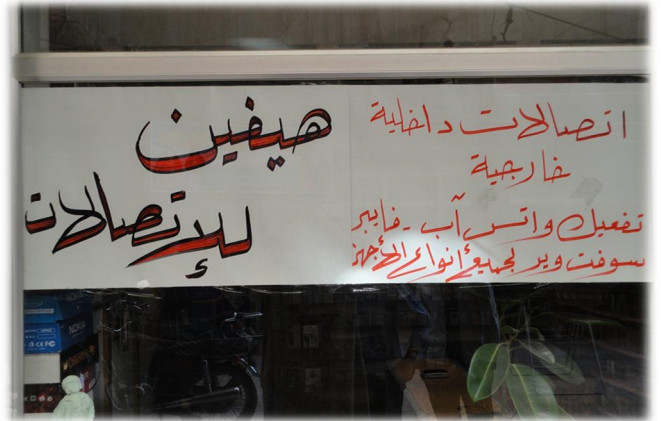 اتصالات داخلية
خارجية
تفعيل واتس آب - فايبر
سوفت وير لجميع أنواع الأجهزة
هيفين
للإتصالات
NOKIA